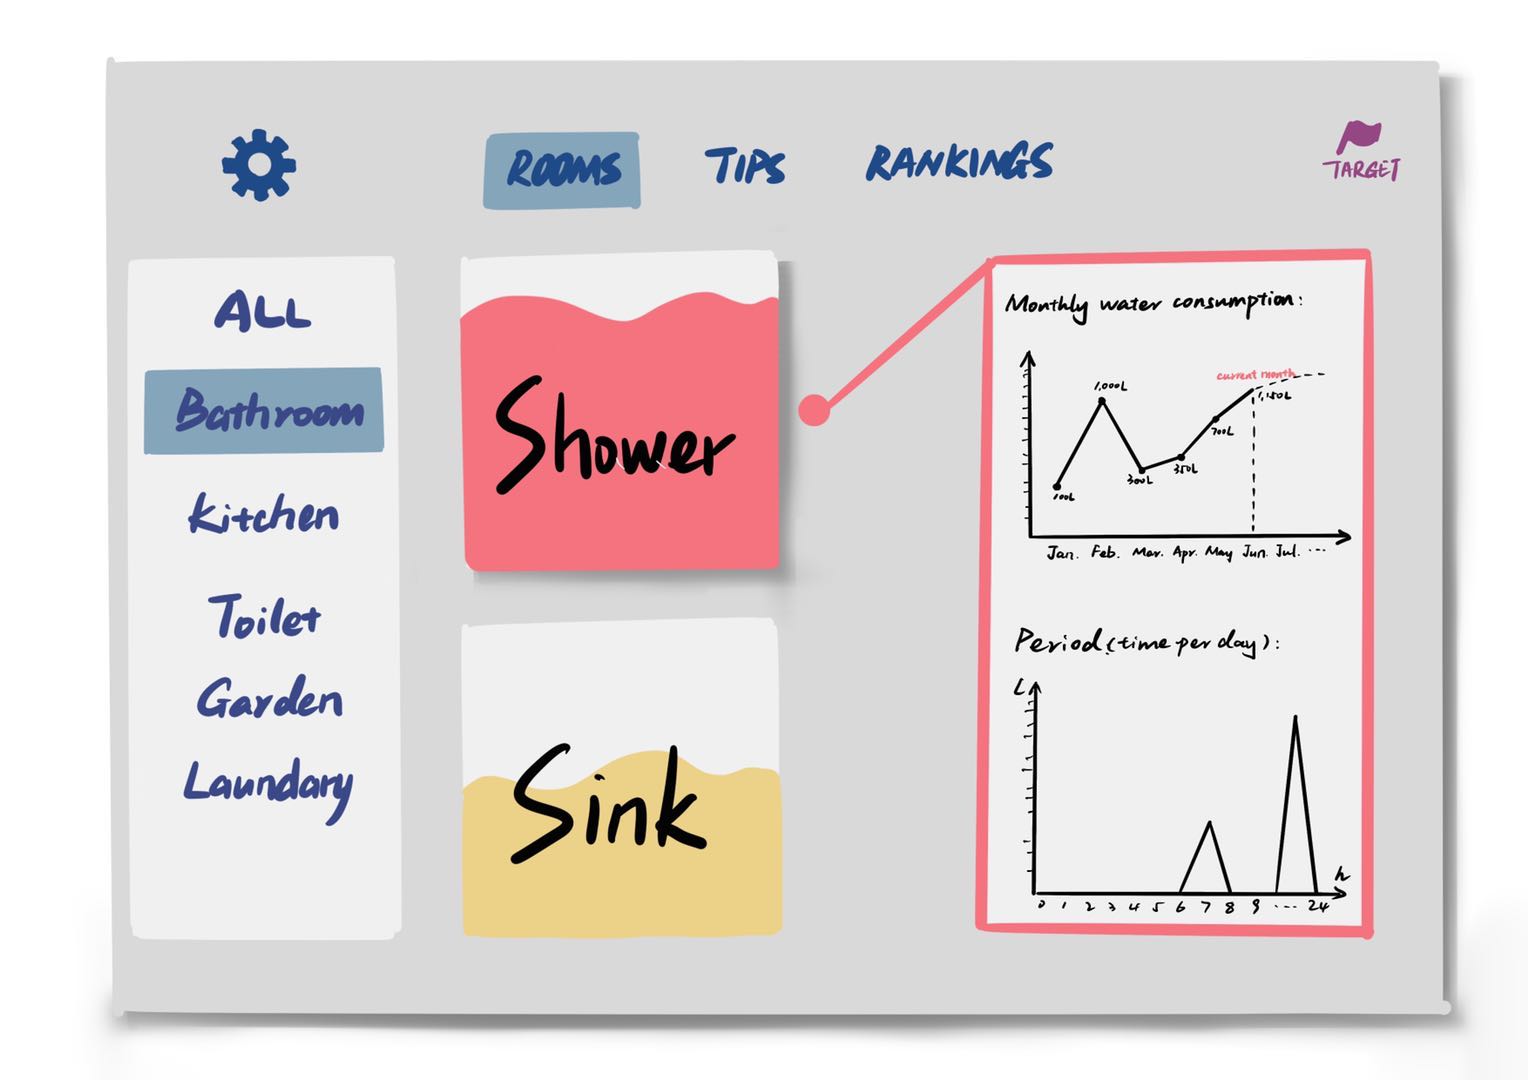 ROOMS TIPS RANKINGS
TARGET
ALL
Bathroom
Kitchen
Toilet
Garden
Laundary
Shower
Sink
Monthly water consumption:
current month
1,000L
1,150L
700L
350L
300L
100L
Jan. Feb. Mar. Apr. May Jun. Jul. ...
Period (time per day):
L
h
0 1 2 3 4 5 6 7 8 9 ... 24